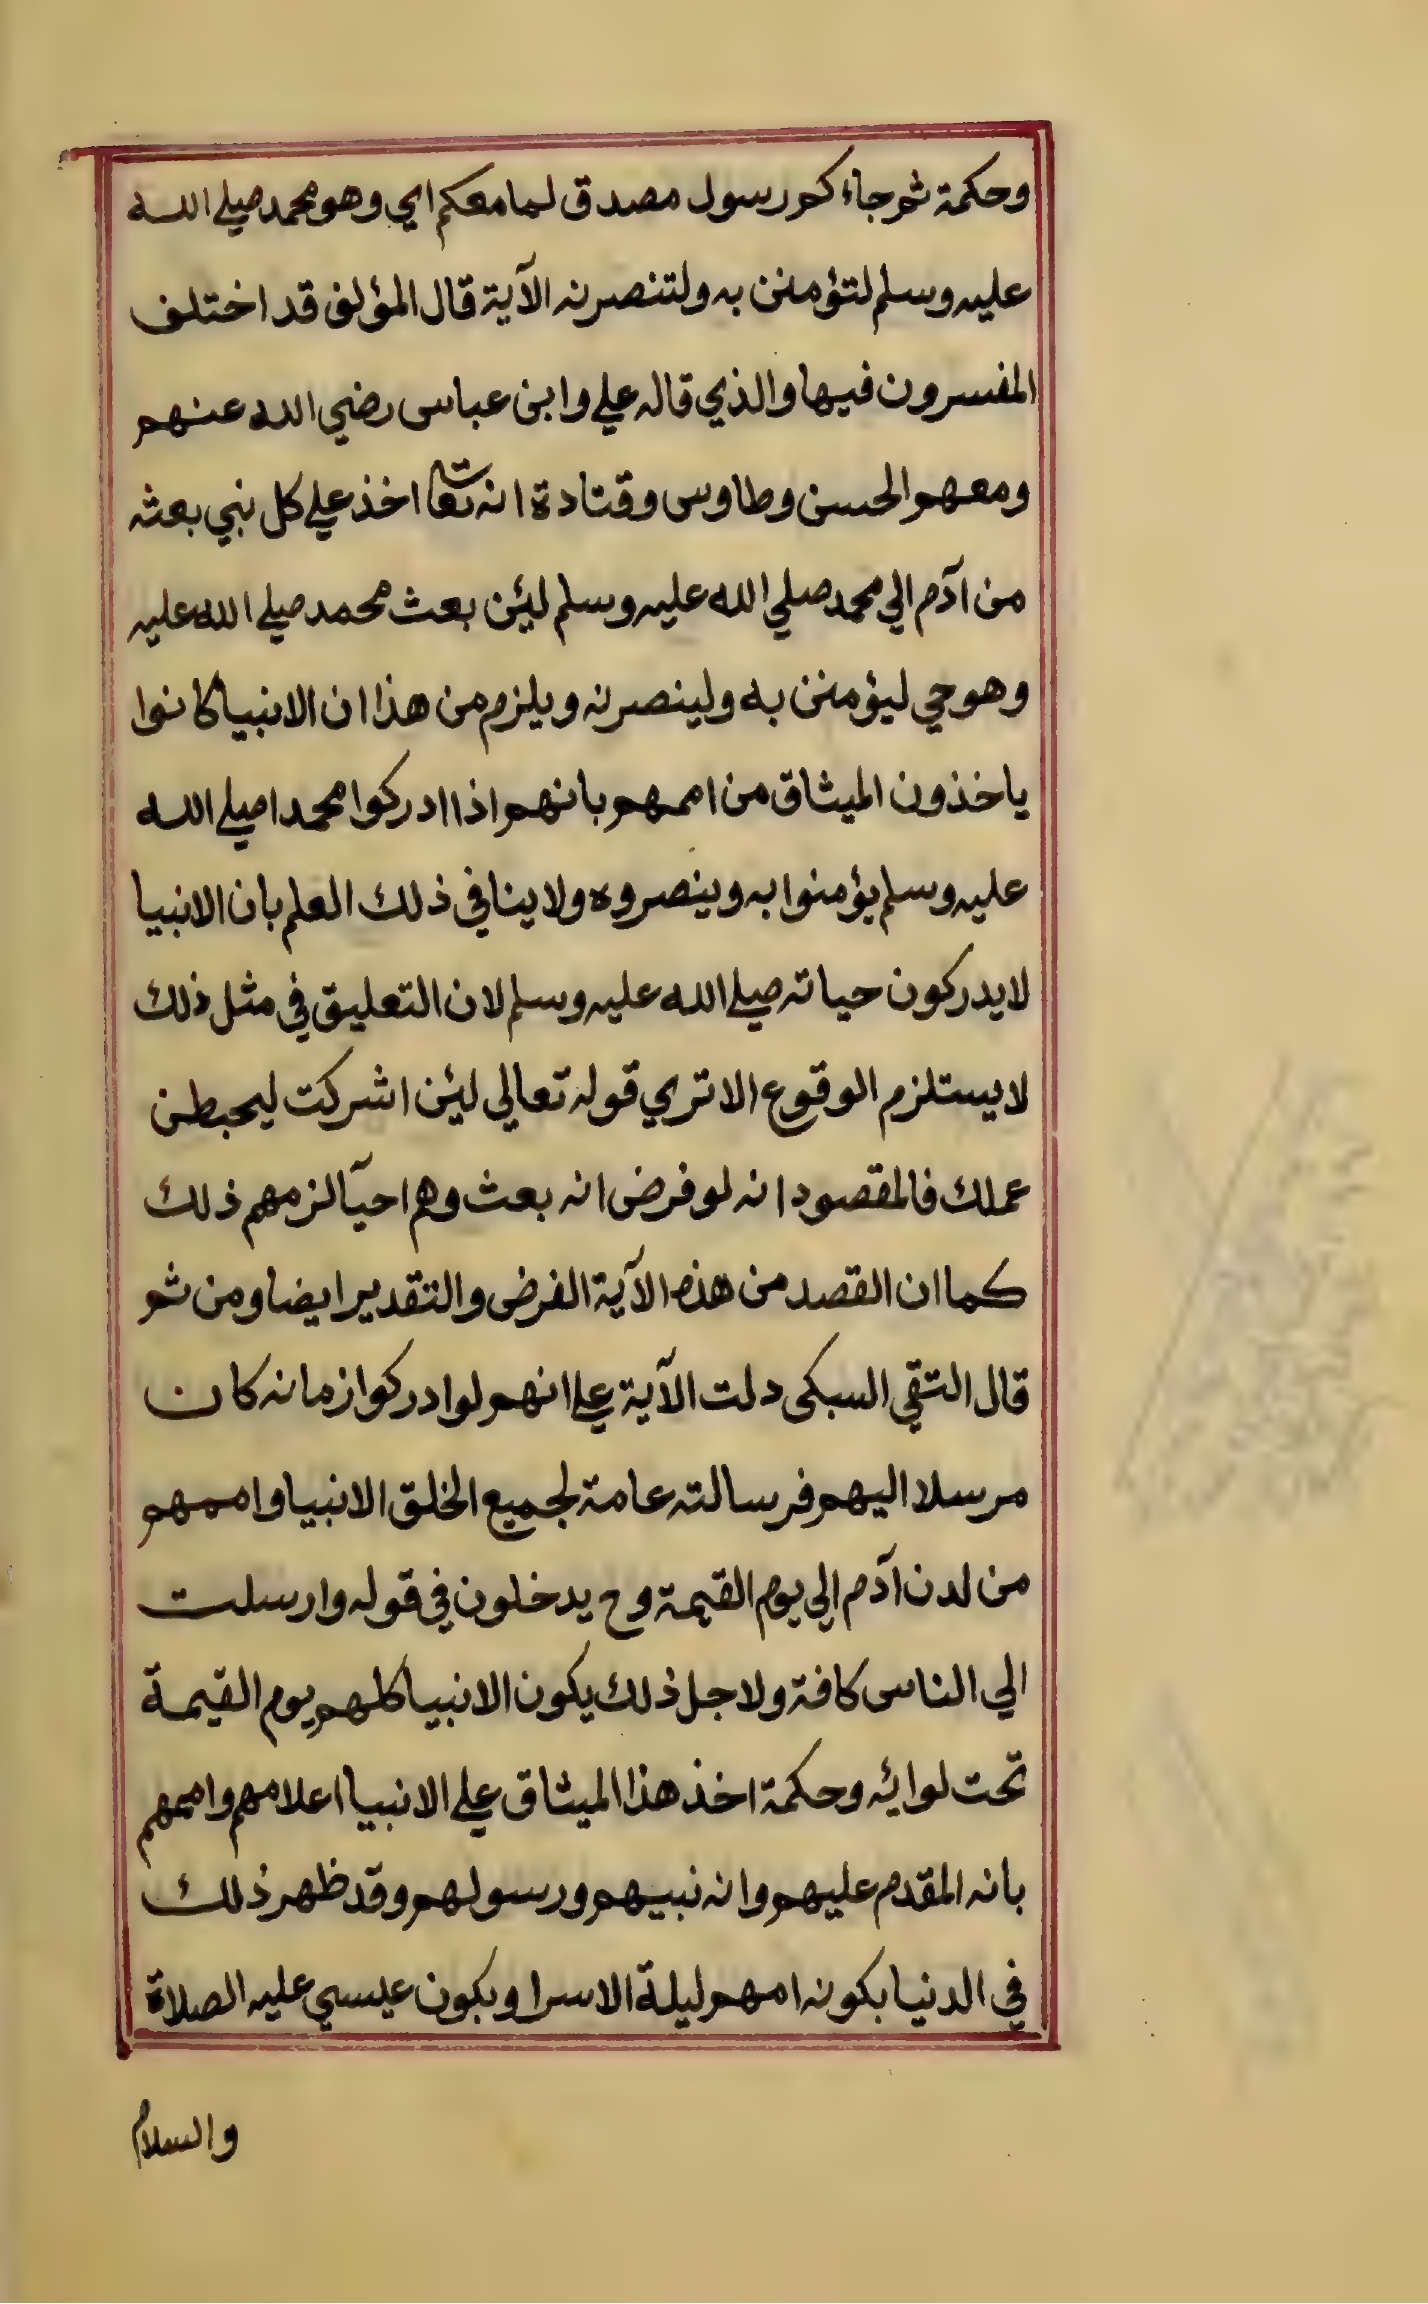 وحكمة ثم جاءكم رسول مصدق لما معكم اي وهو محمد صلي الله
عليه وسلم لتؤمنن به ولتنصرنه الآية قال المؤلف قد اختلف
المفسرون فيها والذي قاله علي وابن عباس رضي الله عنهم
ومعهم الحسن وطاوس وقتادة انه تعا اخذ علي كل نبي بعثه
من آدم الي محمد صلي الله عليه وسلم ليئن بعث محمد صلي الله عليه
وهو حي ليؤمنن به ولينصرنه ويلزم من هذا ان الانبيا كانوا
ياخذون الميثاق من اممهم بانهم اذا ادركوا محمدا صلي الله
عليه وسلم يؤمنوا به وينصروه ولا ينافي ذلك العلم بان الانبيا
لا يدركون حياته صلي الله عليه وسلم لان التعليق في مثل ذلك
لا يستلزم الوقوع الا تري قوله تعالي ليئن اشركت ليحبطن
عملك فالمقصود انه لو فرض انه بعث وهم احيآ لزمهم ذلك
كما ان القصد من هذه الآية الفرض والتقدير ايضا ومن ثم
قال التقي السبكي دلت الآية علي انهم لو ادركوا زمانه كان
مرسلا اليهم فرسالته عامة لجميع الخلق الانبيا واممهم
من لدن آدم الي يوم القيمة وح يدخلون في قوله وارسلت
الي الناس كافة ولاجل ذلك يكون الانبيا كلهم يوم القيمة
تحت لوائه وحكمة اخذ هذا الميثاق علي الانبيا اعلامهم واممهم
بانه المقدم عليهم وانه نبيهم ورسولهم وقد ظهر ذلك
في الدنيا بكونه امهم ليلة الاسرا وبكون عيسي عليه الصلاة
والسلام